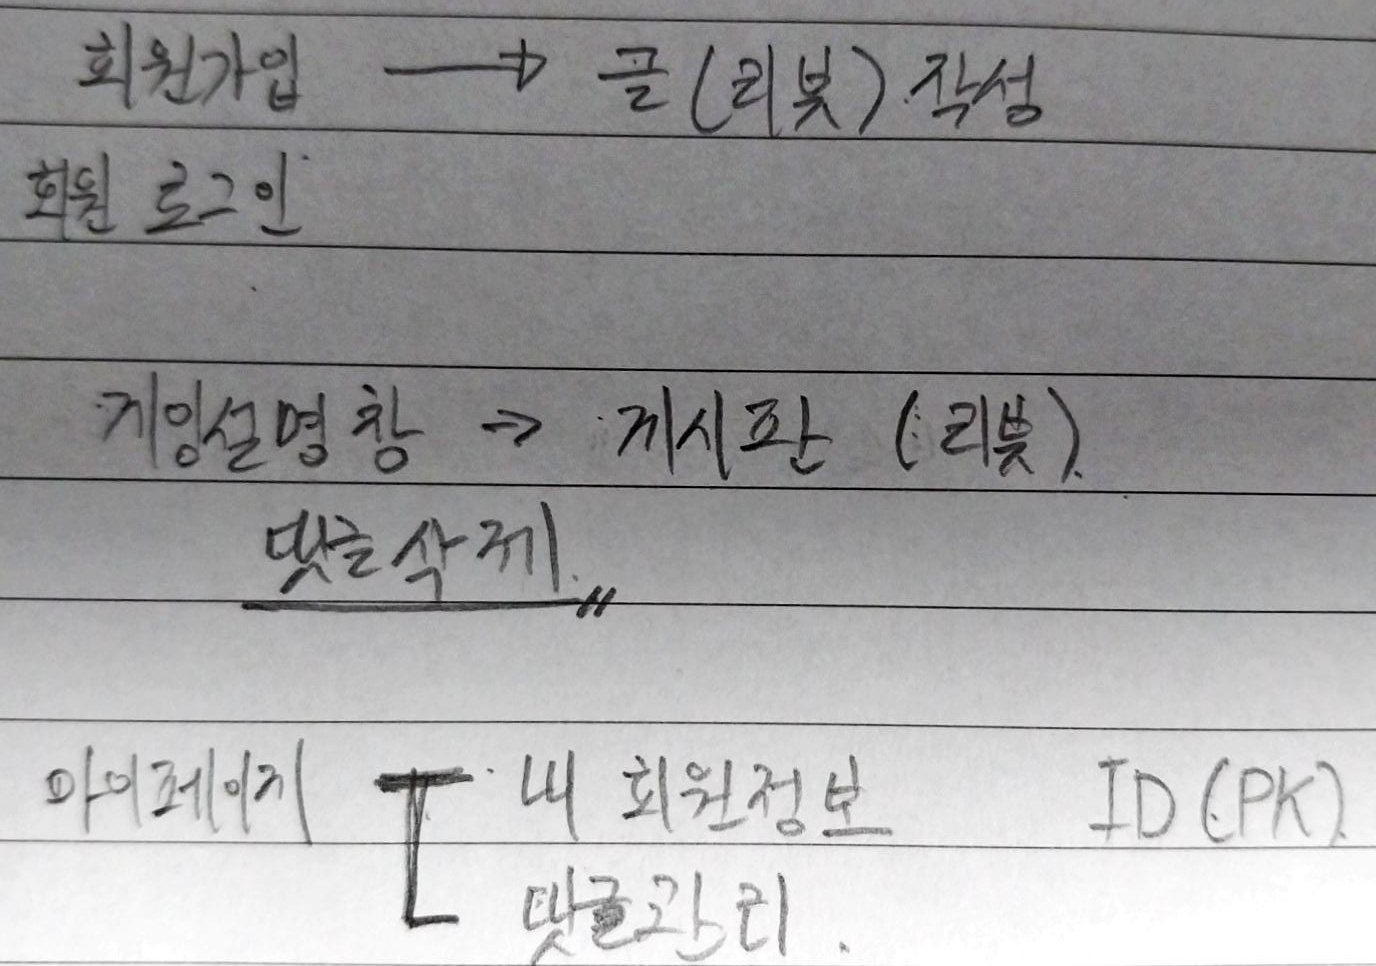 회원가입 → 글(리뷰) 작성
회원 로그인
게임설명창 → 게시판 (리뷰)
댓글삭제
마이페이지 내 회원정보 ID(PK)
댓글관리.